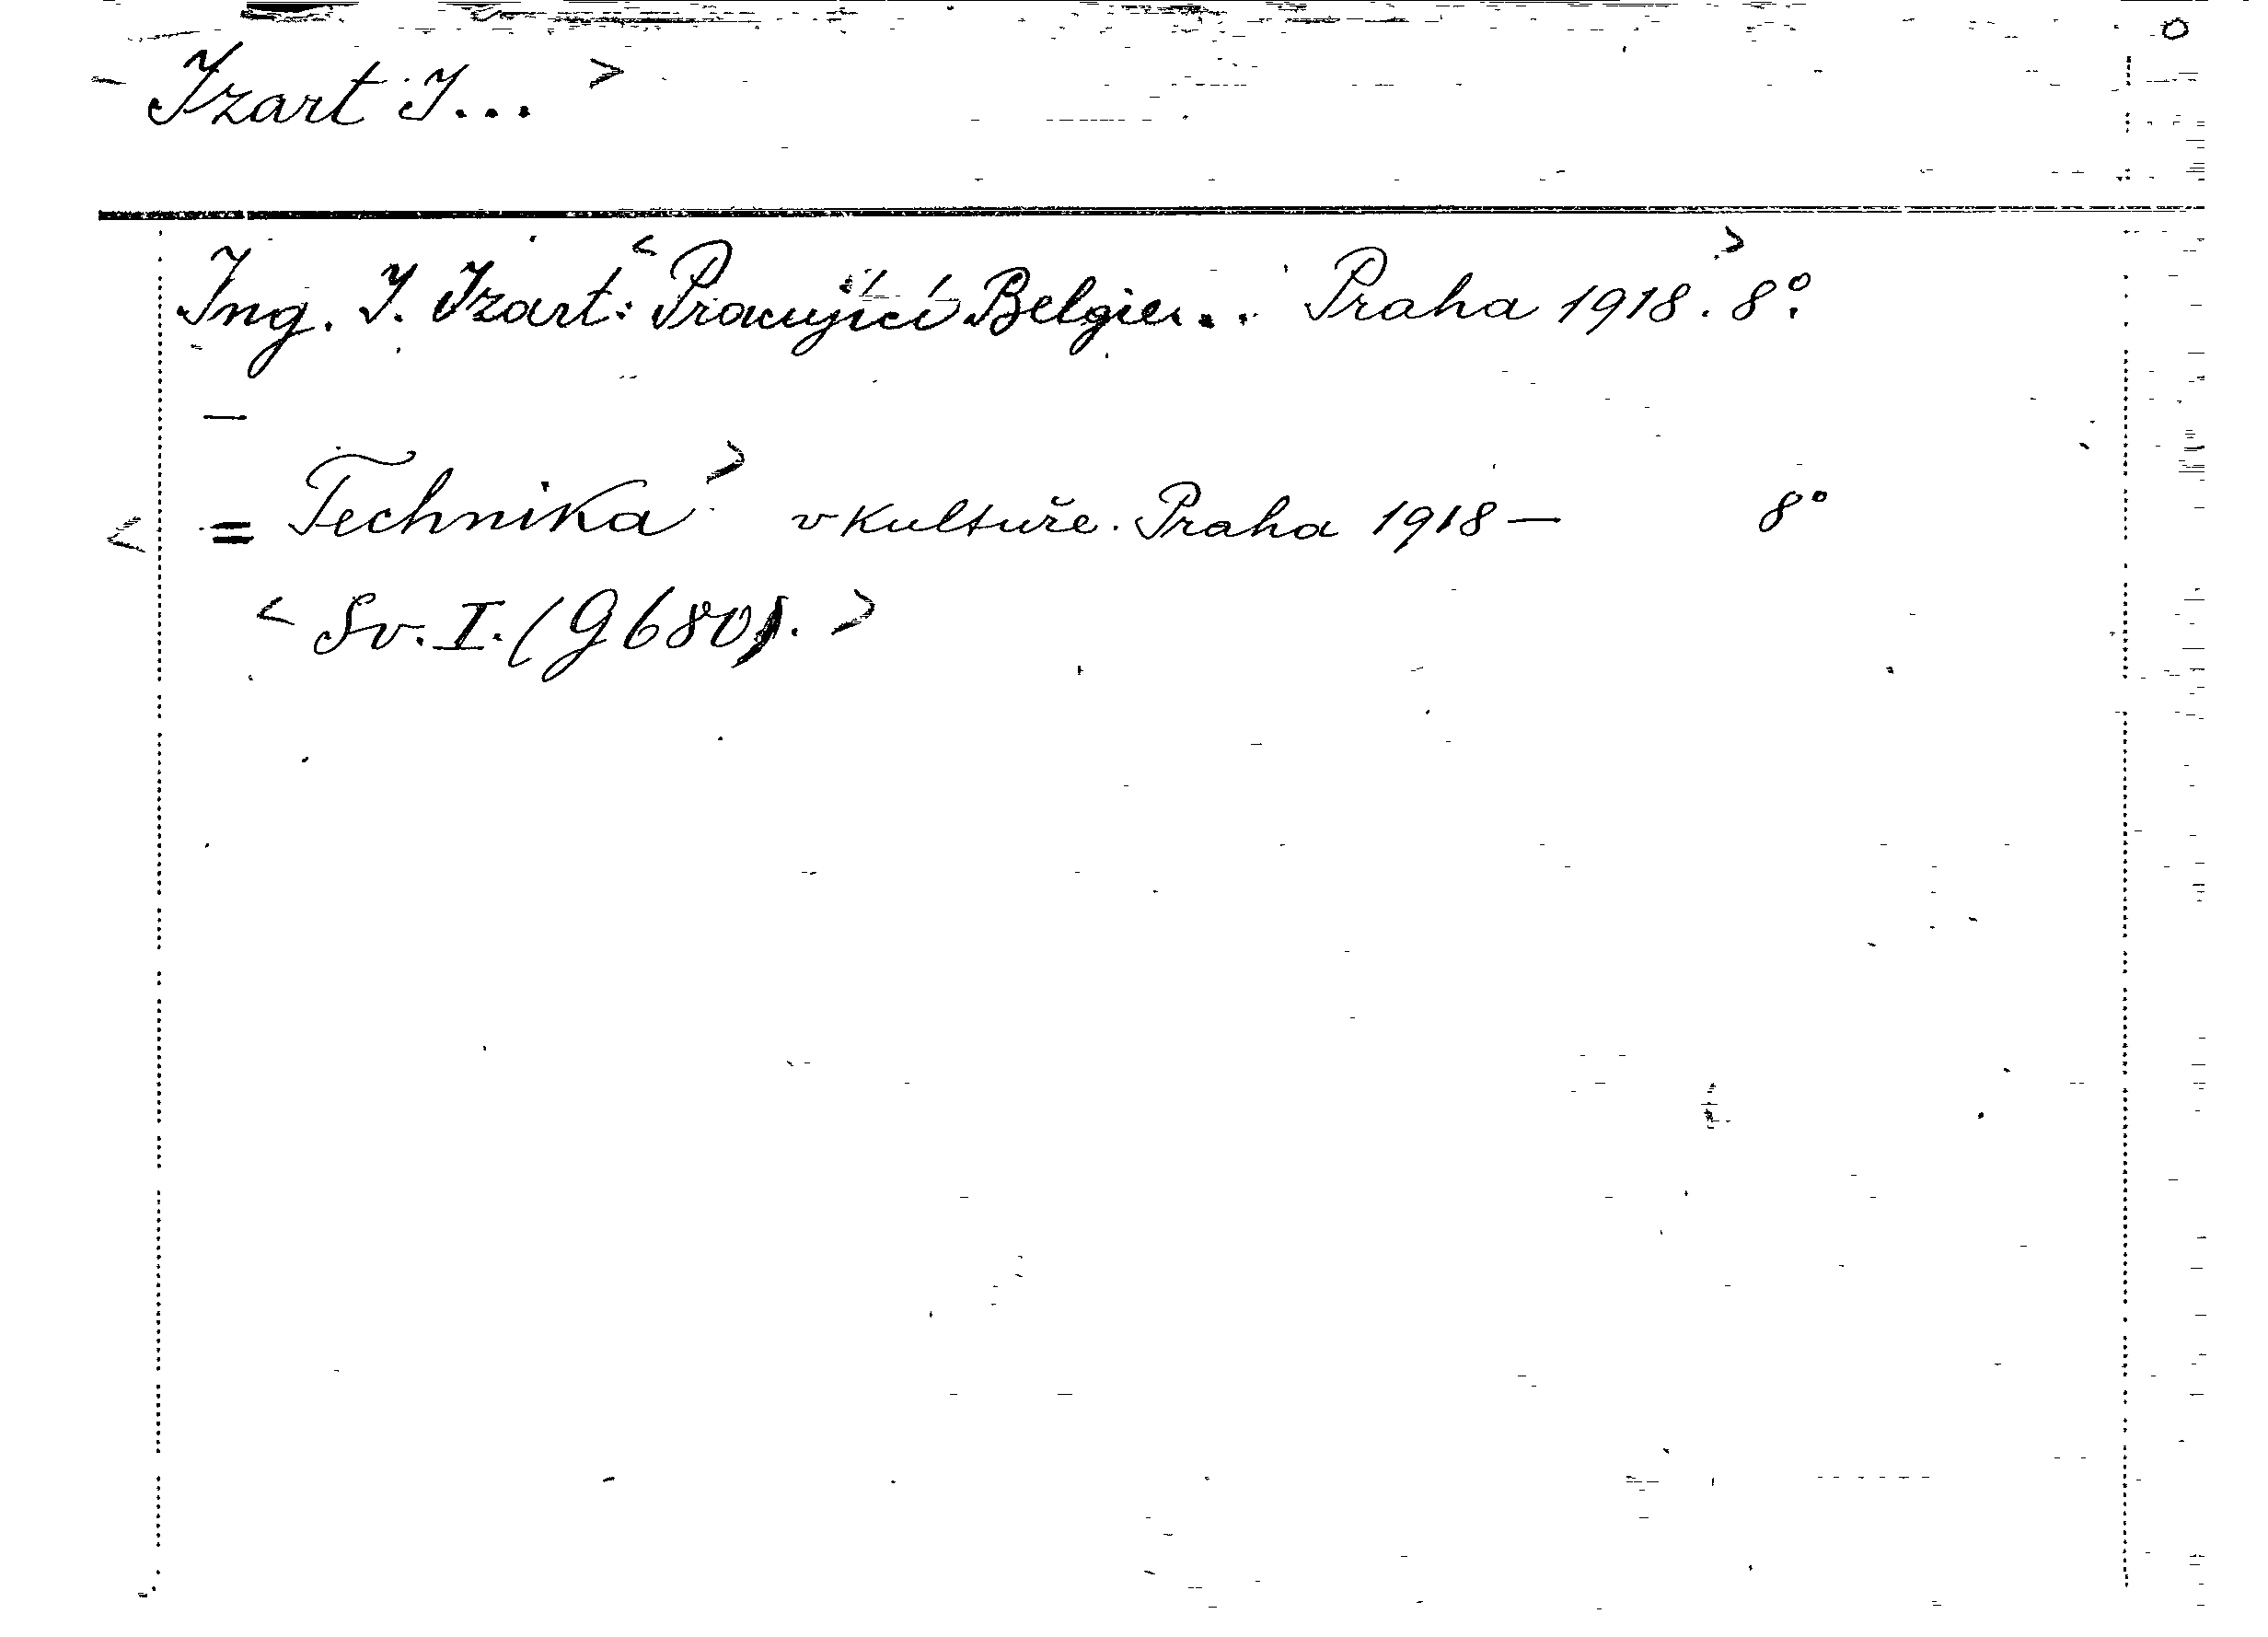 Izart I... >
Ing. I. Izart: < Pracující Belgie... Praha 1918. 8°. >
—
< = Technika > v kultuře. Praha 1918 — 8°
< Sv. I. (G 680). >